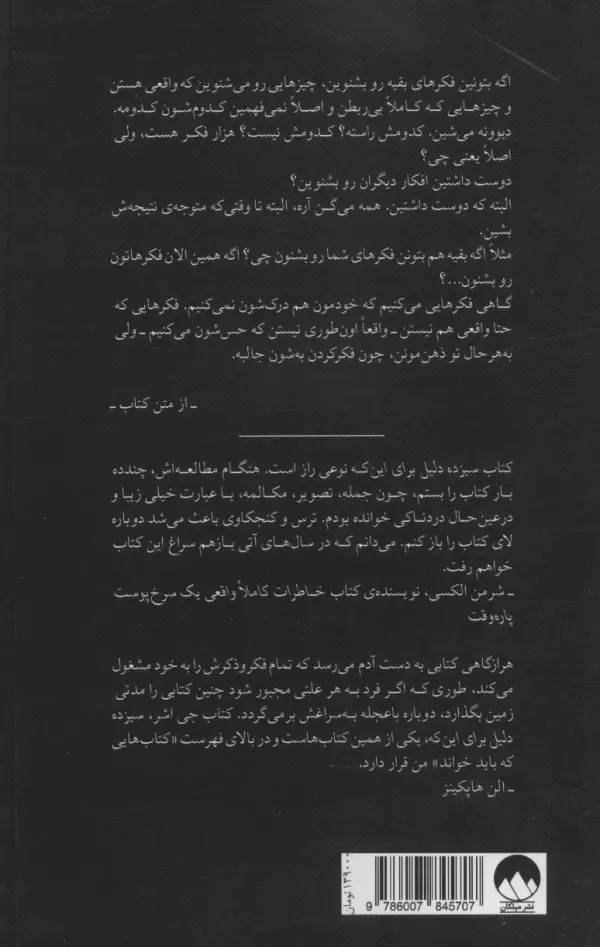 اگه بتونین فکرهای بقیه رو بشنوین، چیزهایی رو می‌شنوین که واقعی هستن
و چیزهایی که کاملاً بی‌ربطن و اصلاً نمی‌فهمین کدوم‌شون کدومه.
دیوونه می‌شین. کدومش راسته؟ کدومش نیست؟ هزار فکر هست، ولی
اصلاً یعنی چی؟
دوست داشتین افکار دیگران رو بشنوین؟
البته که دوست داشتین. همه می‌گن آره، البته تا وقتی‌که متوجه‌ی نتیجه‌ش
بشین.
مثلاً اگه بقیه هم بتونن فکرهای شما رو بشنون چی؟ اگه همین الان فکرهاتون
رو بشنون...؟
گاهی فکرهایی می‌کنیم که خودمون هم درک‌شون نمی‌کنیم. فکرهایی که
حتا واقعی هم نیستن ـ واقعاً اون‌طوری نیستن که حس‌شون می‌کنیم ـ ولی
به‌هرحال تو ذهن‌مونن، چون فکرکردن به‌شون جالبه.
ـ از متن کتاب ـ
کتاب سیزده دلیل برای این‌که نوعی راز است. هنگام مطالعه‌اش، چندده
بار کتاب را بستم، چون جمله، تصویر، مکالمه، یا عبارت خیلی زیبا و
درعین‌حال دردناکی خوانده بودم. ترس و کنجکاوی باعث می‌شد دوباره
لای کتاب را باز کنم. می‌دانم که در سال‌های آتی بازهم سراغ این کتاب
خواهم رفت.
ـ شرمن الکسی، نویسنده‌ی کتاب خاطرات کاملاً واقعی یک سرخ‌پوست
پاره‌وقت
هرازگاهی کتابی به دست آدم می‌رسد که تمام فکروذکرش را به خود مشغول
می‌کند، طوری که اگر فرد به هر علتی مجبور شود چنین کتابی را مدتی
زمین بگذارد، دوباره باعجله به‌سراغش برمی‌گردد. کتاب جی اشر، سیزده
دلیل برای این‌که، یکی از همین کتاب‌هاست و در بالای فهرست «کتاب‌هایی
که باید خواند» من قرار دارد.
ـ الن هاپکینز
۱۳۹۰۰۰ تومان
9 786007 845707
نشر میلکان